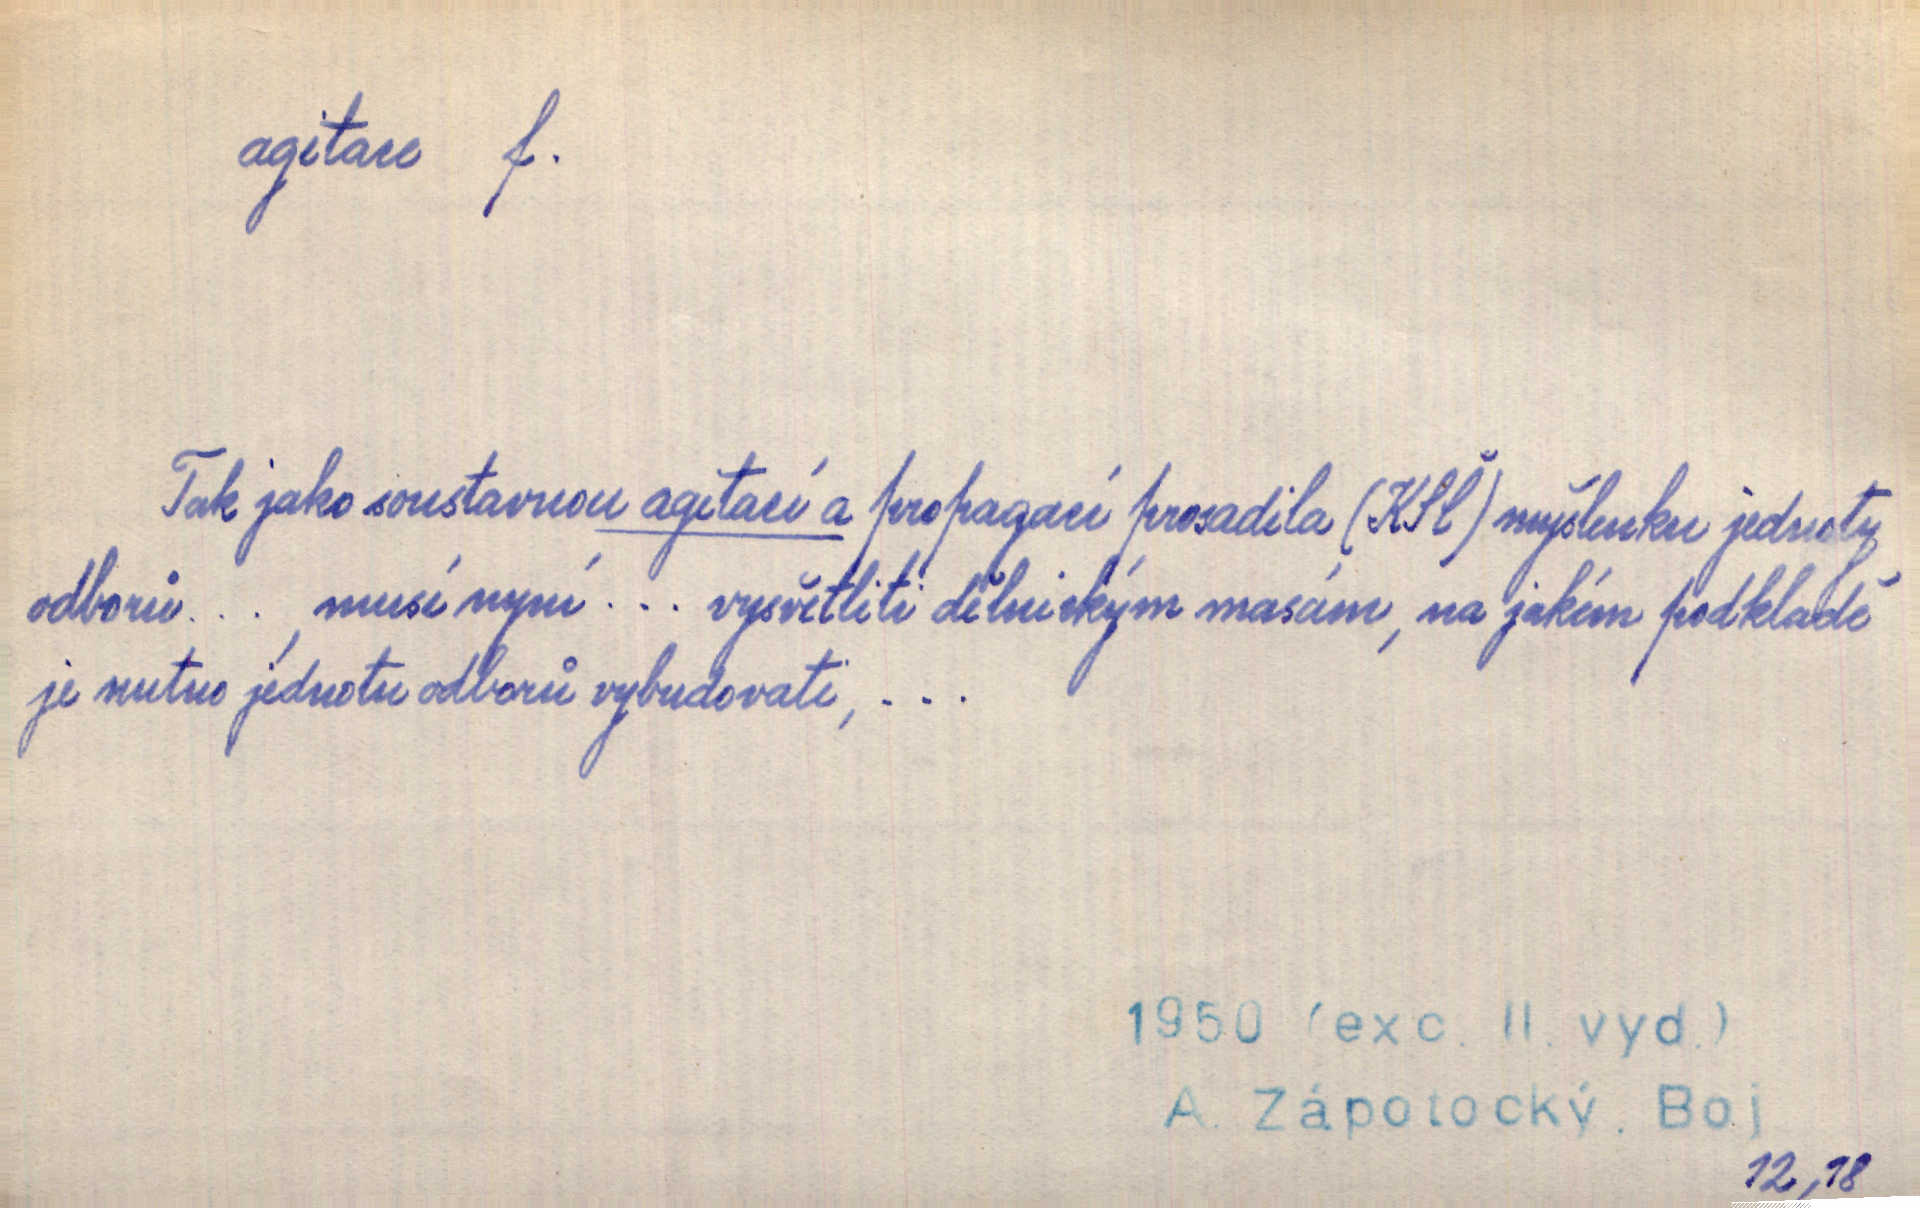 agitace f.
Tak jako soustavnou agitací a propagací prosadila (KSČ) myšlenku jednoty
odborů. . . , musí nyní . . . vysvětliti dělnickým masám, na jakém podkladě
je nutno jednotu odborů vybudovati, . . .
1950 (exc. II. vyd.)
A. Zápotocký. Boj
12,18